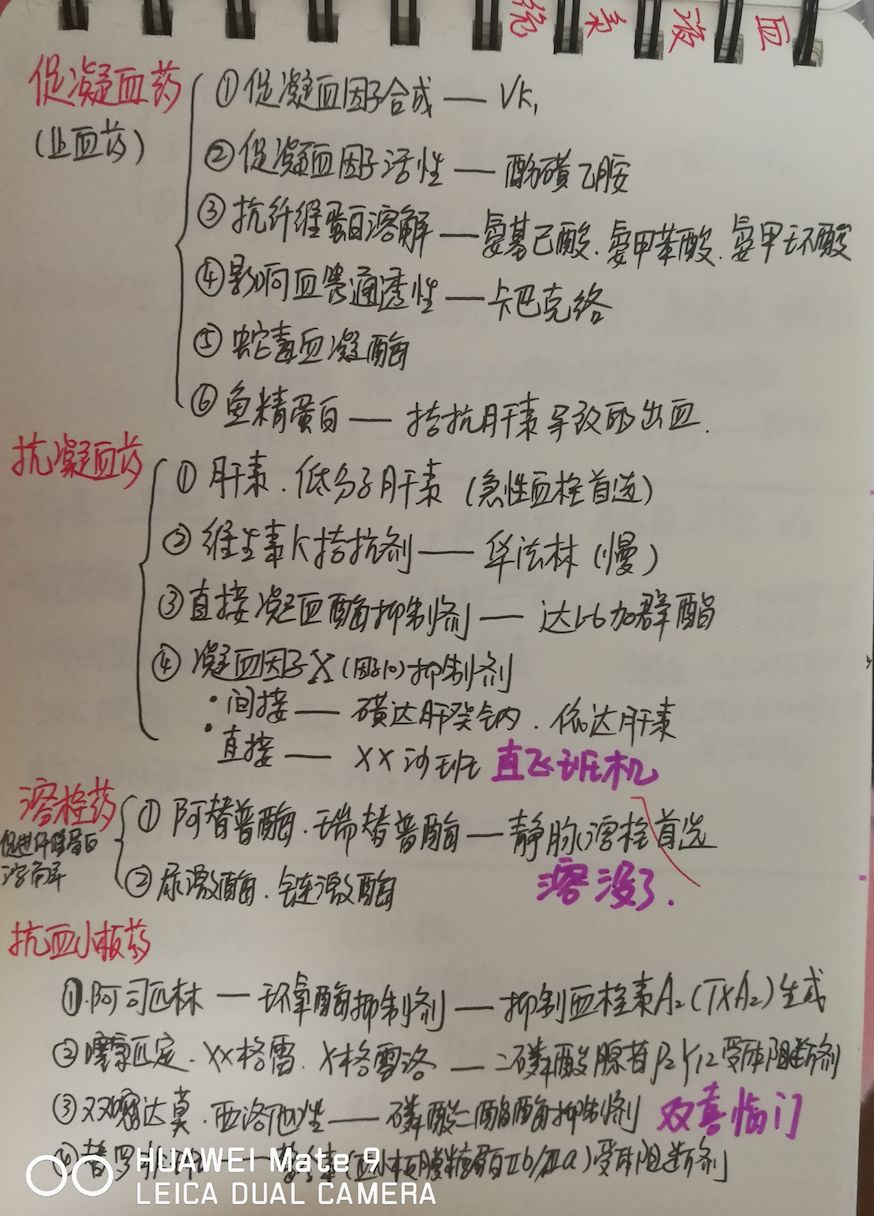 血液系统
促凝血药
(止血药)
①促凝血因子合成——VK₁
②促凝血因子活性——酚磺乙胺
③抗纤维蛋白溶解——氨基己酸、氨甲苯酸、氨甲环酸
④影响血管通透性——卡巴克络
⑤蛇毒血凝酶
⑥鱼精蛋白——拮抗肝素导致的出血.
抗凝血药
①肝素、低分子肝素(急性血栓首选)
②维生素K拮抗剂——华法林(慢)
③直接凝血酶抑制剂——达比加群酯
④凝血因子X(因子10)抑制剂
·间接——磺达肝癸钠、依达肝素
·直接——XX沙班 直飞班机
溶栓药
促进纤维蛋白
溶解
①阿替普酶、瑞替普酶——静脉溶栓首选
②尿激酶、链激酶 溶没了.
抗血小板药
①阿司匹林—环氧酶抑制剂—抑制血栓素A₂(TXA₂)生成
②噻氯匹定、XX格雷、X格雷洛—二磷酸腺苷P2Y12受体阻断剂
③双嘧达莫、西洛他唑——磷酸二酯酶抑制剂 双喜临门
④替罗 血小板膜糖蛋白Ⅱb/Ⅲa)受体阻断剂
HUAWEI Mate 9
LEICA DUAL CAMERA